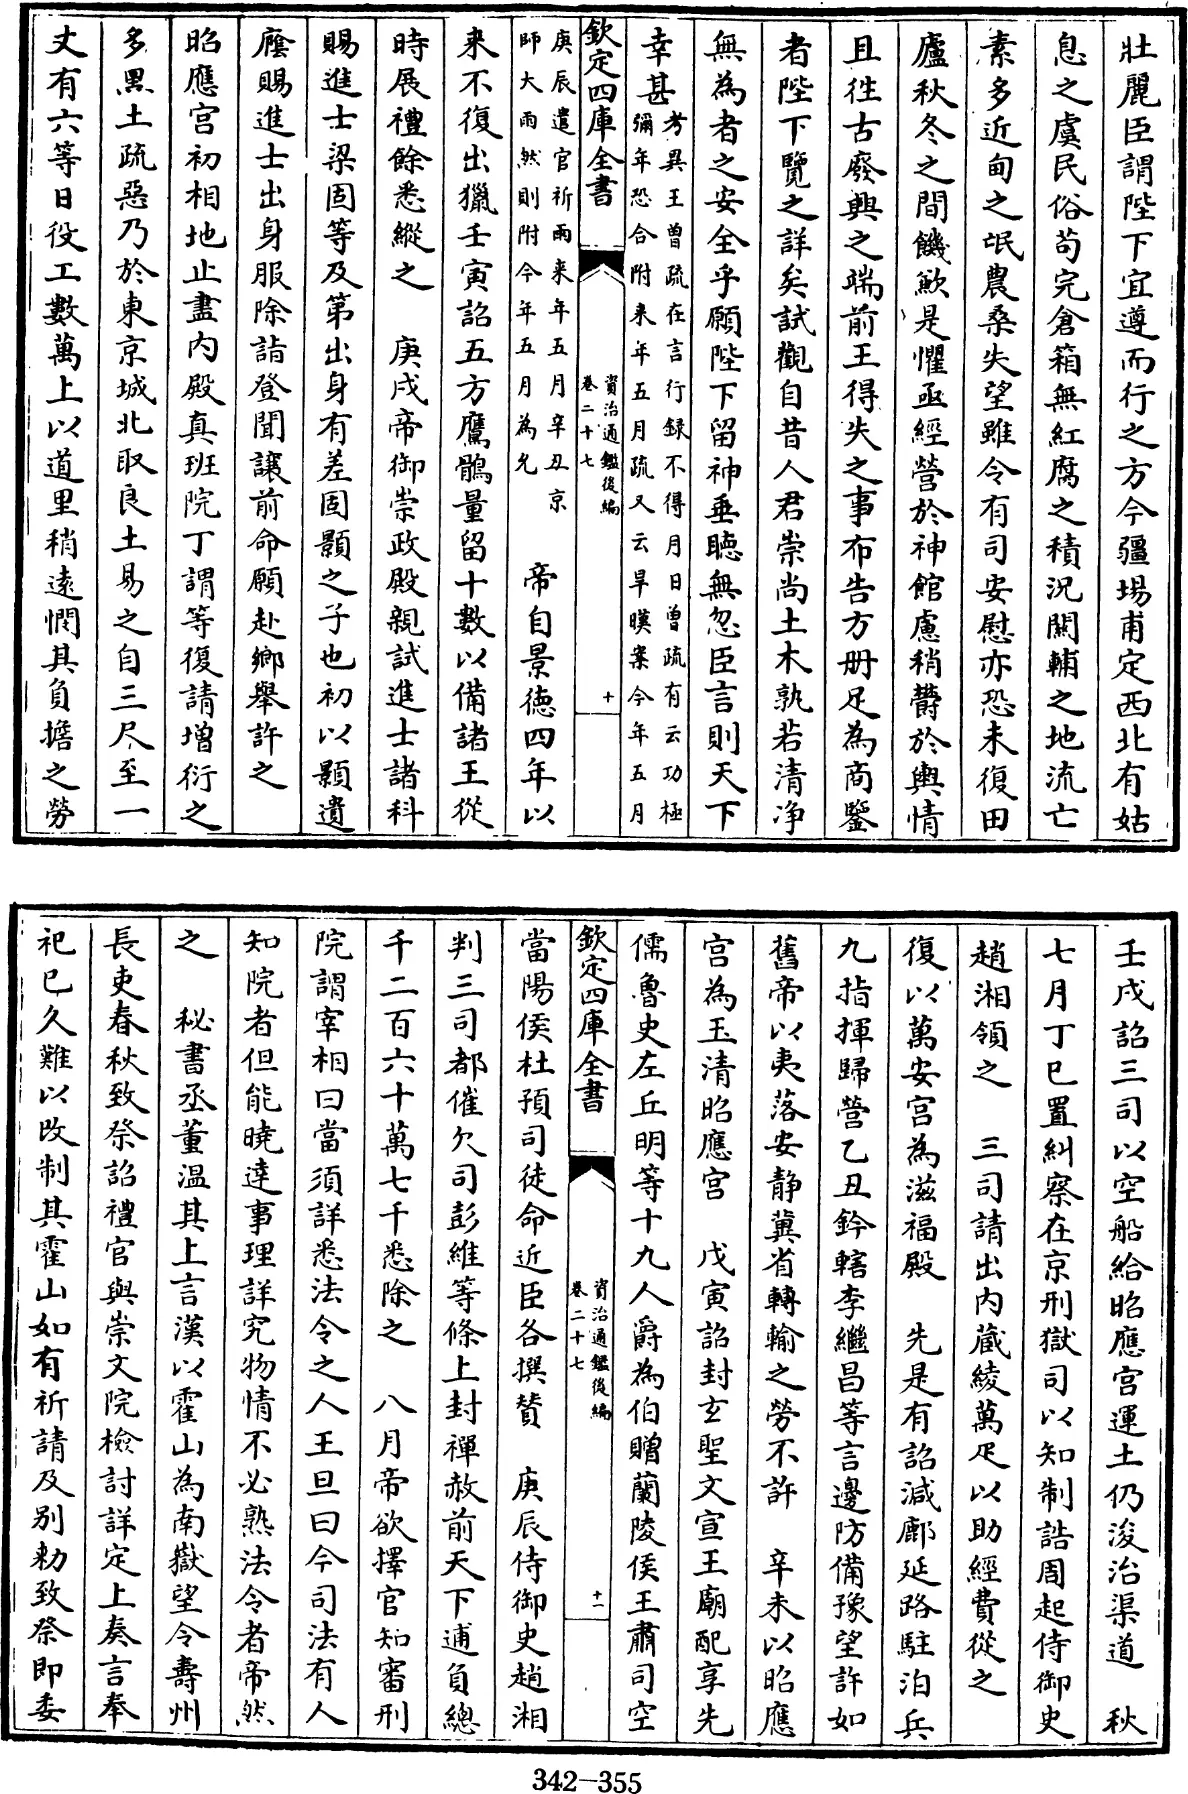 壯麗臣謂陛下宜遵而行之方今疆埸甫定西北有姑
息之虞民俗苟完倉箱無紅腐之積況關輔之地流亡
素多近甸之氓農桑失望雖令有司安慰亦恐未復田
廬秋冬之間饑歉是懼亟經營於神館慮稍欝於輿情
且徃古廢興之端前王得失之事布告方册足為商鑒
者陛下覽之詳矣試觀自昔人君崇尚土木孰若清净
無為者之安全乎願陛下留神垂聴無忽臣言則天下
幸甚考異王曾疏在言行録不得月日曾疏有云功極
彌年恐合附来年五月疏又云旱暵案今年五月
欽定四庫全書
資治通鑑後編
卷二十七
十
庚辰遣官祈雨来年五月辛丑京
師大雨然則附今年五月為允
帝自景德四年以
来不復出獵壬寅詔五方鷹鶻量留十數以備諸王從
時展禮餘悉縱之 庚戌帝御崇政殿親試進士諸科
賜進士梁固等及第出身有差固顥之子也初以顥遺
廕賜進士出身服除詣登聞讓前命願赴鄉舉許之
昭應宫初相地止盡内殿真班院丁謂等復請增衍之
多黒土疏惡乃於東京城北取良土易之自三尺至一
丈有六等日役工數萬上以道里稍遠憫其負擔之勞
壬戌詔三司以空船給昭應宫運土仍浚治渠道 秋
七月丁巳置糾察在京刑獄司以知制誥周起侍御史
趙湘領之 三司請出内藏綾萬疋以助經費從之
復以萬安宫為滋福殿 先是有詔減鄜延路駐泊兵
九指揮歸營乙丑鈐轄李繼昌等言邊防備豫望許如
舊帝以夷落安静冀省轉輸之勞不許 辛未以昭應
宫為玉清昭應宫 戊寅詔封玄聖文宣王廟配享先
儒魯史左丘明等十九人爵為伯贈蘭陵侯王肅司空
欽定四庫全書
資治通鑑後編
卷二十七
十一
當陽侯杜預司徒命近臣各撰贊 庚辰侍御史趙湘
判三司都催欠司彭維等條上封禪赦前天下逋負總
千二百六十萬七千悉除之 八月帝欲擇官知審刑
院謂宰相曰當須詳悉法令之人王旦曰今司法有人
知院者但能曉達事理詳究物情不必熟法令者帝然
之 秘書丞董温其上言漢以霍山為南嶽望令壽州
長吏春秋致祭詔禮官與崇文院檢討詳定上奏言奉
祀已久難以改制其霍山如有祈請及别勅致祭即委
342-355